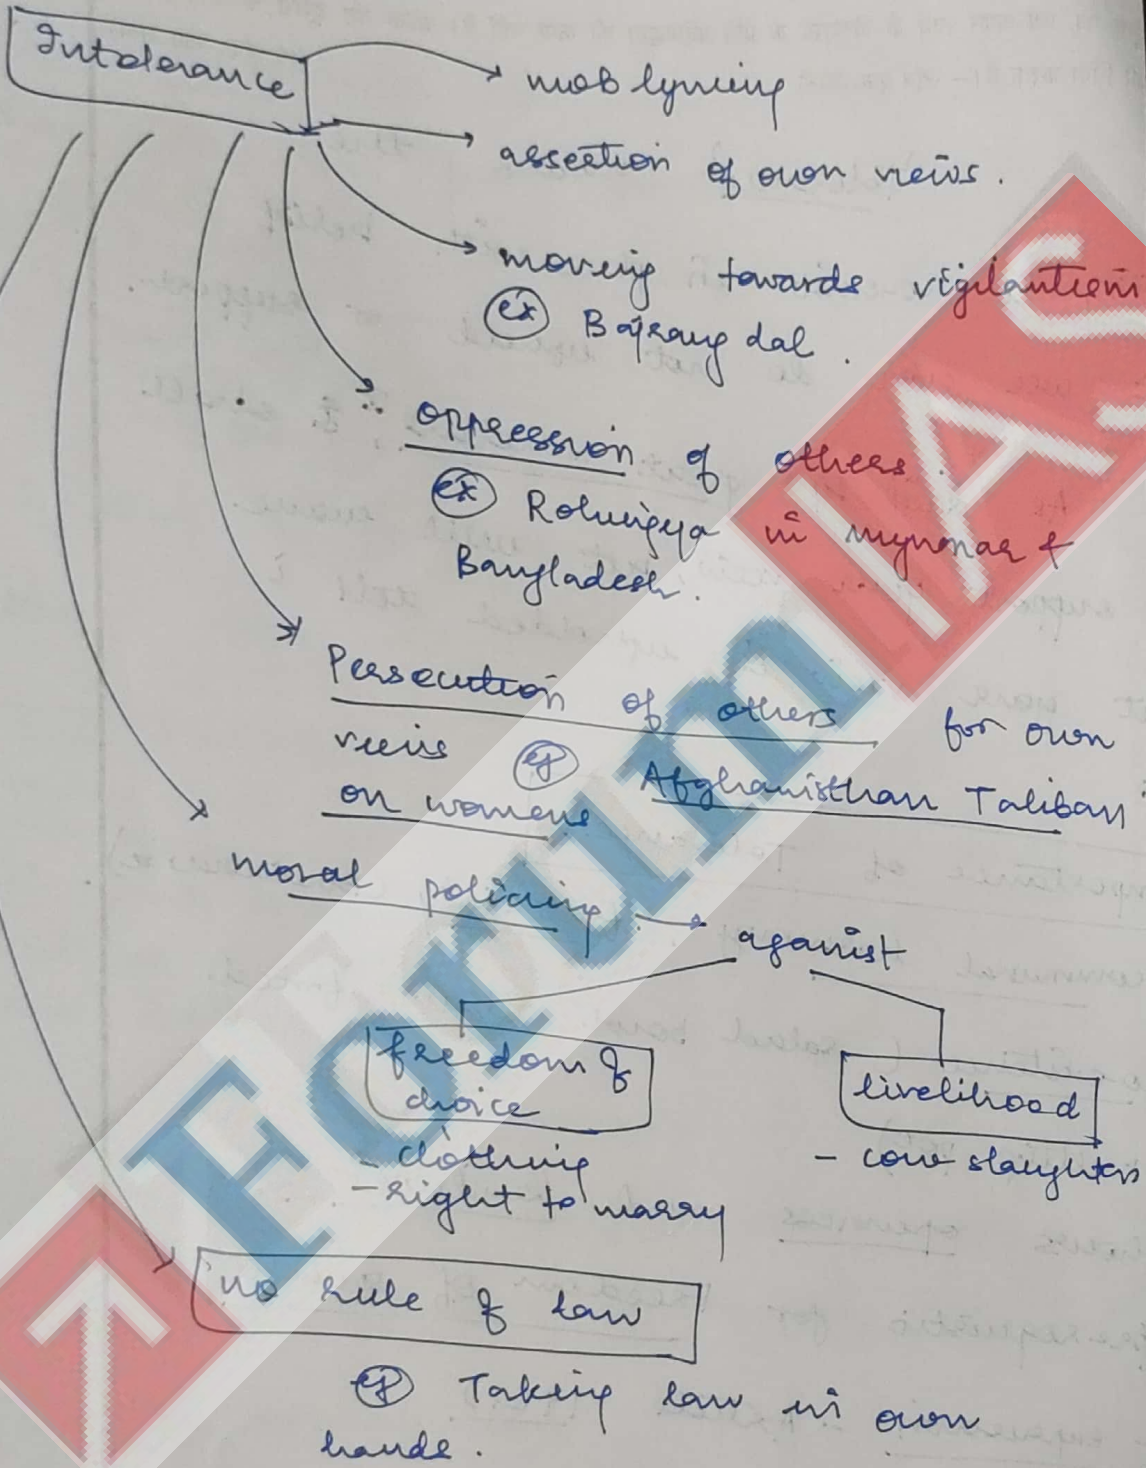 Intolerance
mob lyncing
assertion of own views.
moving towards vigilantism
ex Bajrang dal.
oppression of others.
ex Rohingya in mynmar &
Bangladesh.
Persecution of others for own
views eg Afghanisthan Taliban
on womens
moral policing → aganist
freedom of
choice
- clothing
- right to marry
livelihood
- cow slaughter
no rule of law
eg Taking law in own
hands.
Forum IAS